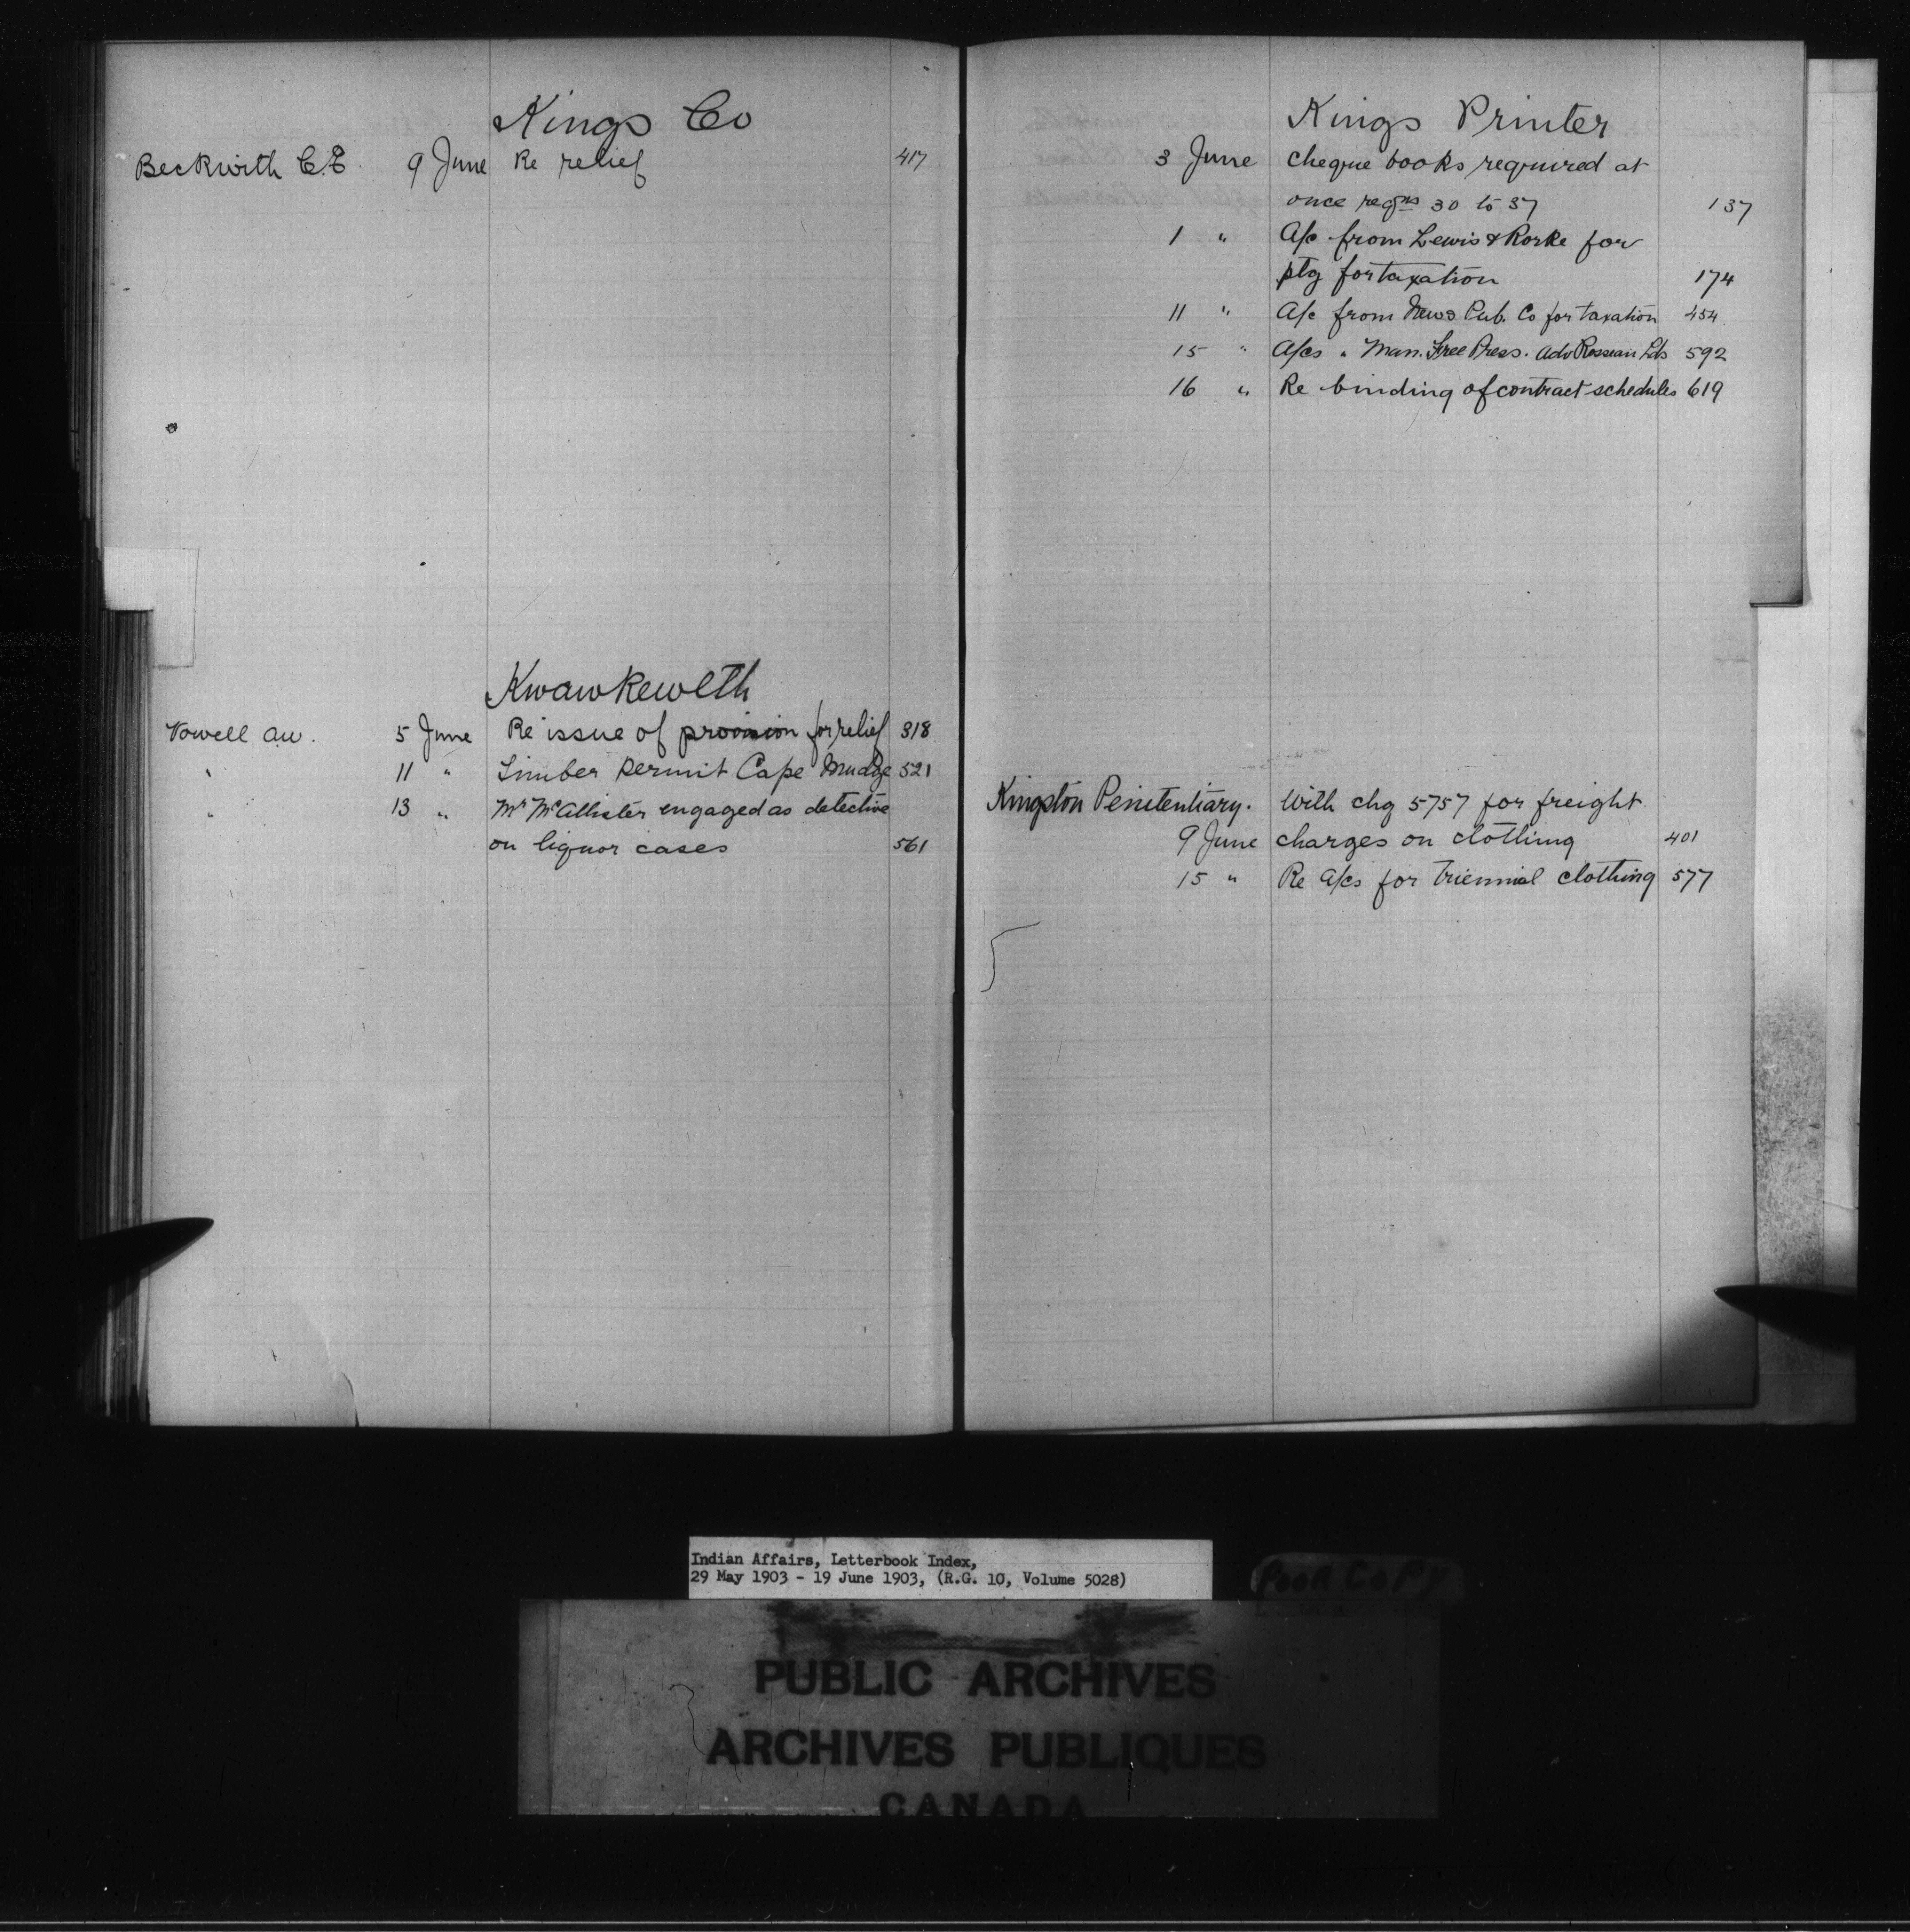 Kings Co
Beckwith C.E. 9 June Re relief 417
Kwawkewlth
Vowell A.W. 5 June Re issue of provision for relief 318
" 11 " Timber permit Cape Mudge 521
" 13 " Mr McAllister engaged as detective
on liquor cases 561
Kings Printer
3 June cheque books required at
once reqns 30 to 37 137
1 " A/c from Lewis & Rorke for
ptg for taxation 174
11 " A/c from News Pub. Co for taxation 454
15 " A/cs " Man. Free Press. Adv Rosseau Lds 592
16 " Re binding of contract schedules 619
Kingston Penitentiary. With chq 5757 for freight
9 June charges on clothing 401
15 " Re a/cs for triennial clothing 577
Indian Affairs, Letterbook Index,
29 May 1903 - 19 June 1903, (R.G. 10, Volume 5028)
POOR COPY
PUBLIC ARCHIVES
ARCHIVES PUBLIQUES
CANADA